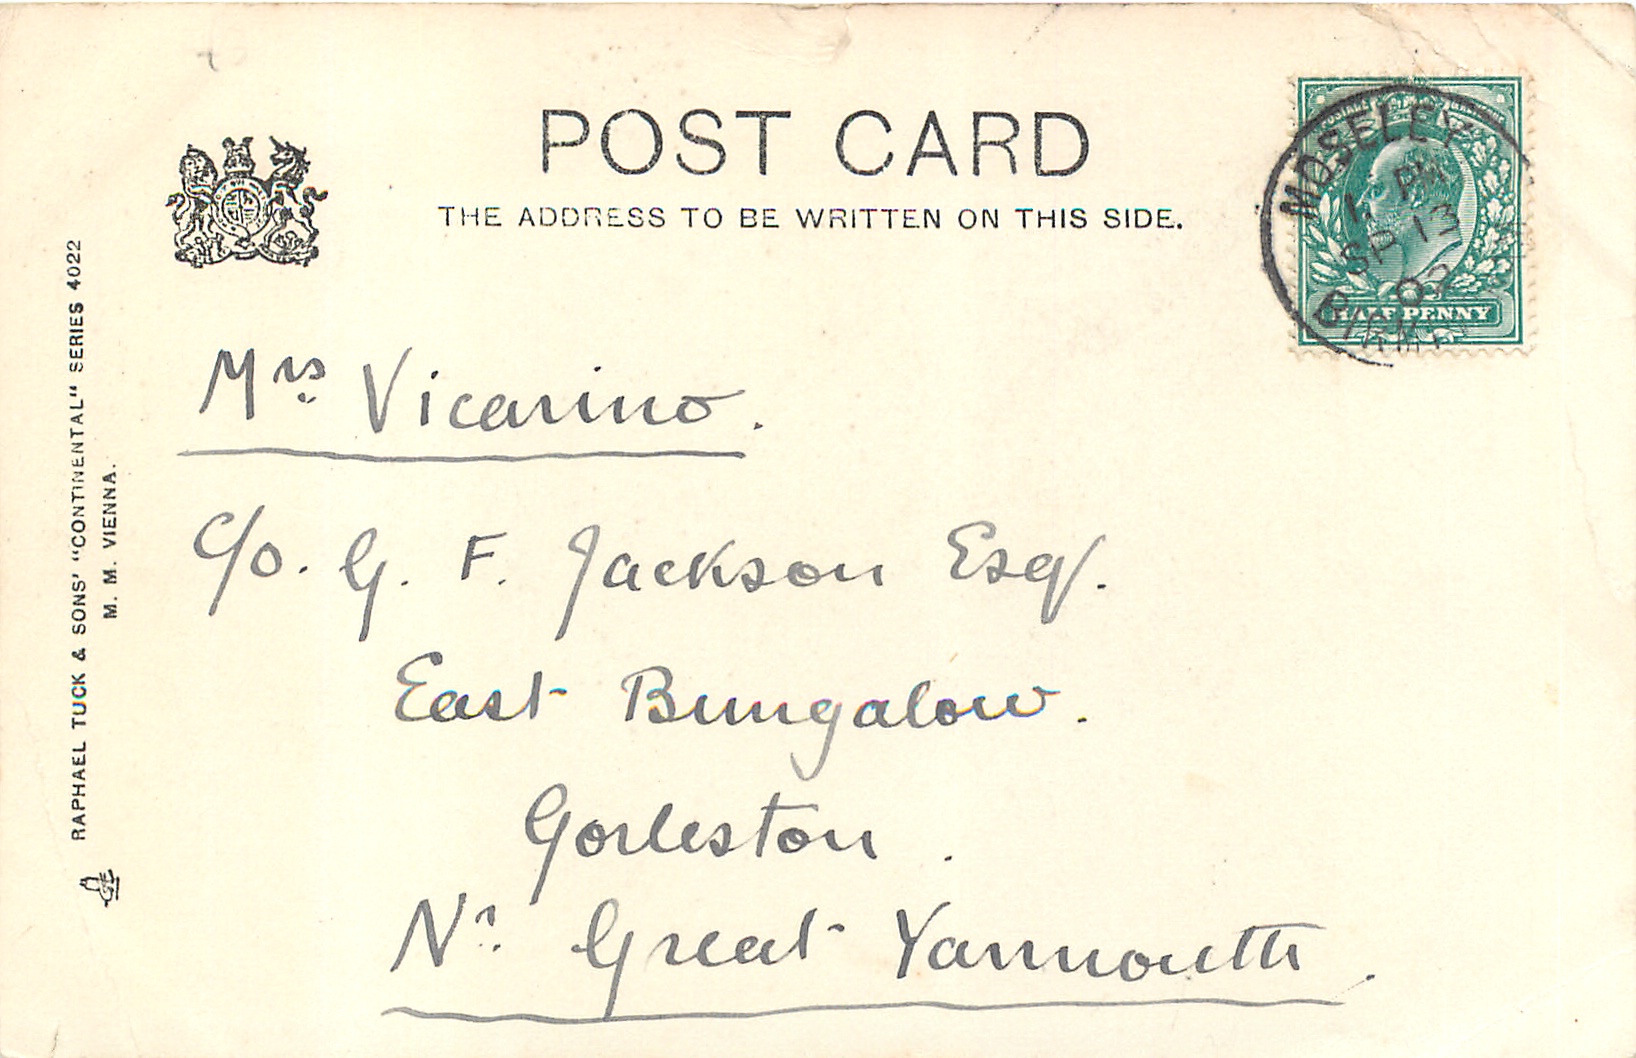 POST CARD
THE ADDRESS TO BE WRITTEN ON THIS SIDE.
MOSELEY
1. PM
SP 13
02
BIRM
HALF PENNY
RAPHAEL TUCK & SONS' "CONTINENTAL" SERIES 4022
M. M. VIENNA.
Mrs Vicarino.
C/o. G. F. Jackson Esq.
East Bungalow.
Gorleston.
Nr. Great Yarmouth.